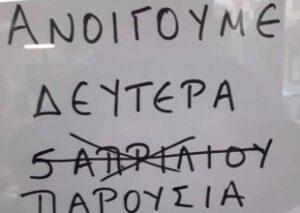 ΑΝΟΙΓΟΥΜΕ
ΔΕΥΤΕΡΑ
5 ΑΠΡΙΛΙΟΥ
ΠΑΡΟΥΣΙΑ